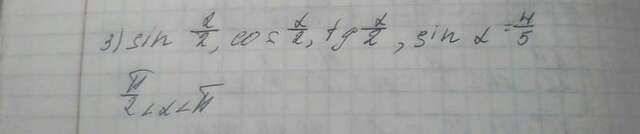 3) sin α/2, cos α/2, tg α/2, sin α = 4/5
π/2 < α < π